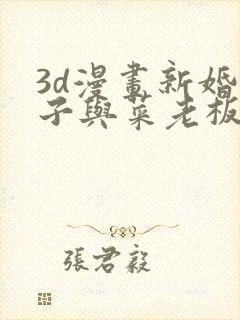 3d漫畫新婚
子與菜老板
張君毅